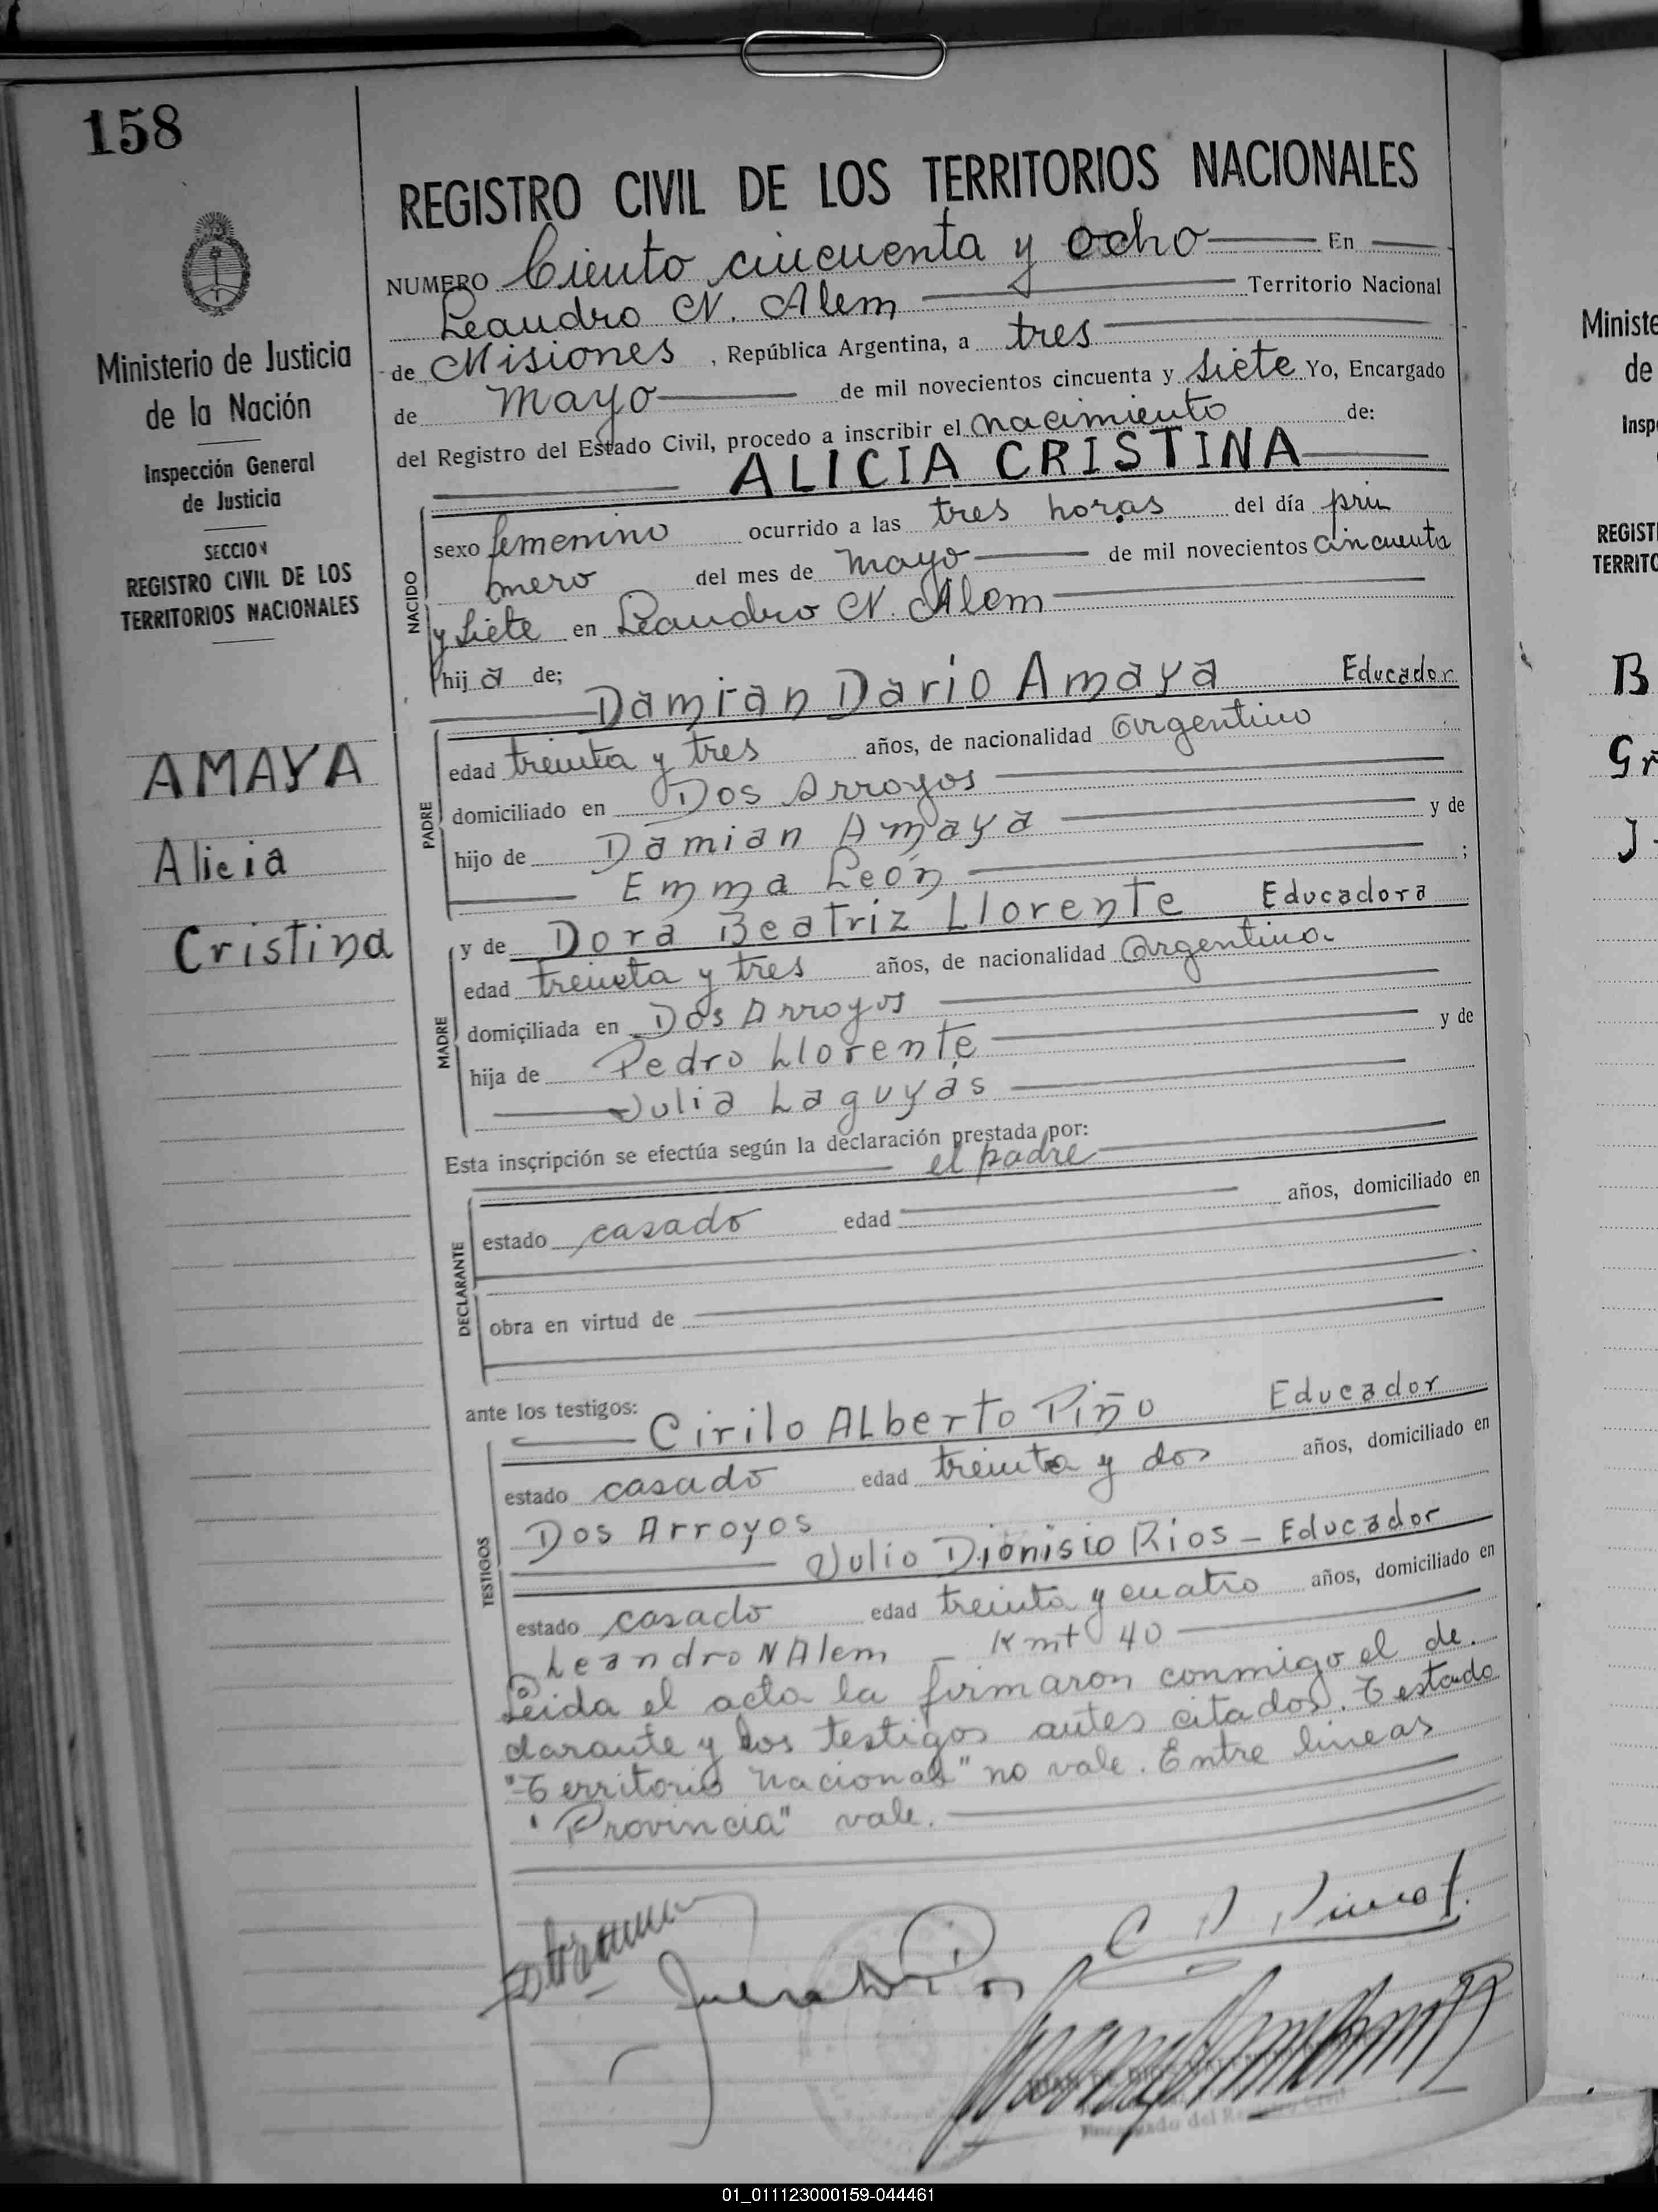 158
Ministerio de Justicia
de la Nación
Inspección General
de Justicia
SECCION
REGISTRO CIVIL DE LOS
TERRITORIOS NACIONALES
AMAYA
Alicia
Cristina
REGISTRO CIVIL DE LOS TERRITORIOS NACIONALES
NUMERO Ciento cincuenta y ocho En
Leandro N. Alem Territorio Nacional
de Misiones, República Argentina, a tres
de mayo de mil novecientos cincuenta y siete Yo, Encargado
del Registro del Estado Civil, procedo a inscribir el nacimiento de:
ALICIA CRISTINA
NACIDO
sexo femenino ocurrido a las tres horas del día pri
mero del mes de mayo de mil novecientos cincuenta
y siete en Leandro N. Alem
hija de;
Damian Dario Amaya Educador
PADRE
edad treinta y tres años, de nacionalidad Argentino
domiciliado en Dos Arroyos
hijo de Damian Amaya y de
Emma León ;
y de Dora Beatriz Llorente Educadora
MADRE
edad treinta y tres años, de nacionalidad Argentina
domiciliada en Dos Arroyos
hija de Pedro Llorente y de
Julia Laguyás
Esta inscripción se efectúa según la declaración prestada por:
el padre
DECLARANTE
estado casado edad años, domiciliado en
obra en virtud de
ante los testigos:
Cirilo Alberto Piño Educador
TESTIGOS
estado casado edad treinta y dos años, domiciliado en
Dos Arroyos
Julio Dionisio Rios - Educador
estado casado edad treinta y cuatro años, domiciliado en
Leandro N Alem - Kmt 40
Leida el acta la firmaron conmigo el de.
clarante y los testigos antes citados. Testado
"Territorio Nacional" no vale. Entre lineas
"Provincia" vale.
Encargado del Registro Civil
Ministe
de
Insp
REGIST
TERRITO
B
Gr
J
01_011123000159-044461